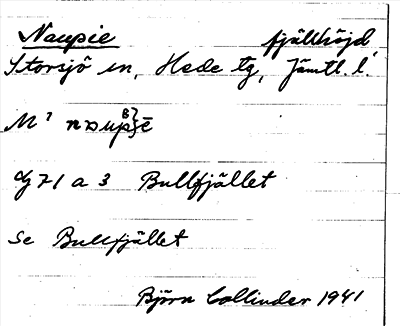 Naupie fjällhöjd
Storsjö sn, Hede tg, Jämtl. l.
M?
Y 71 a 3 Bullfjället
Se Bullfjället
Björn Collinder 1941